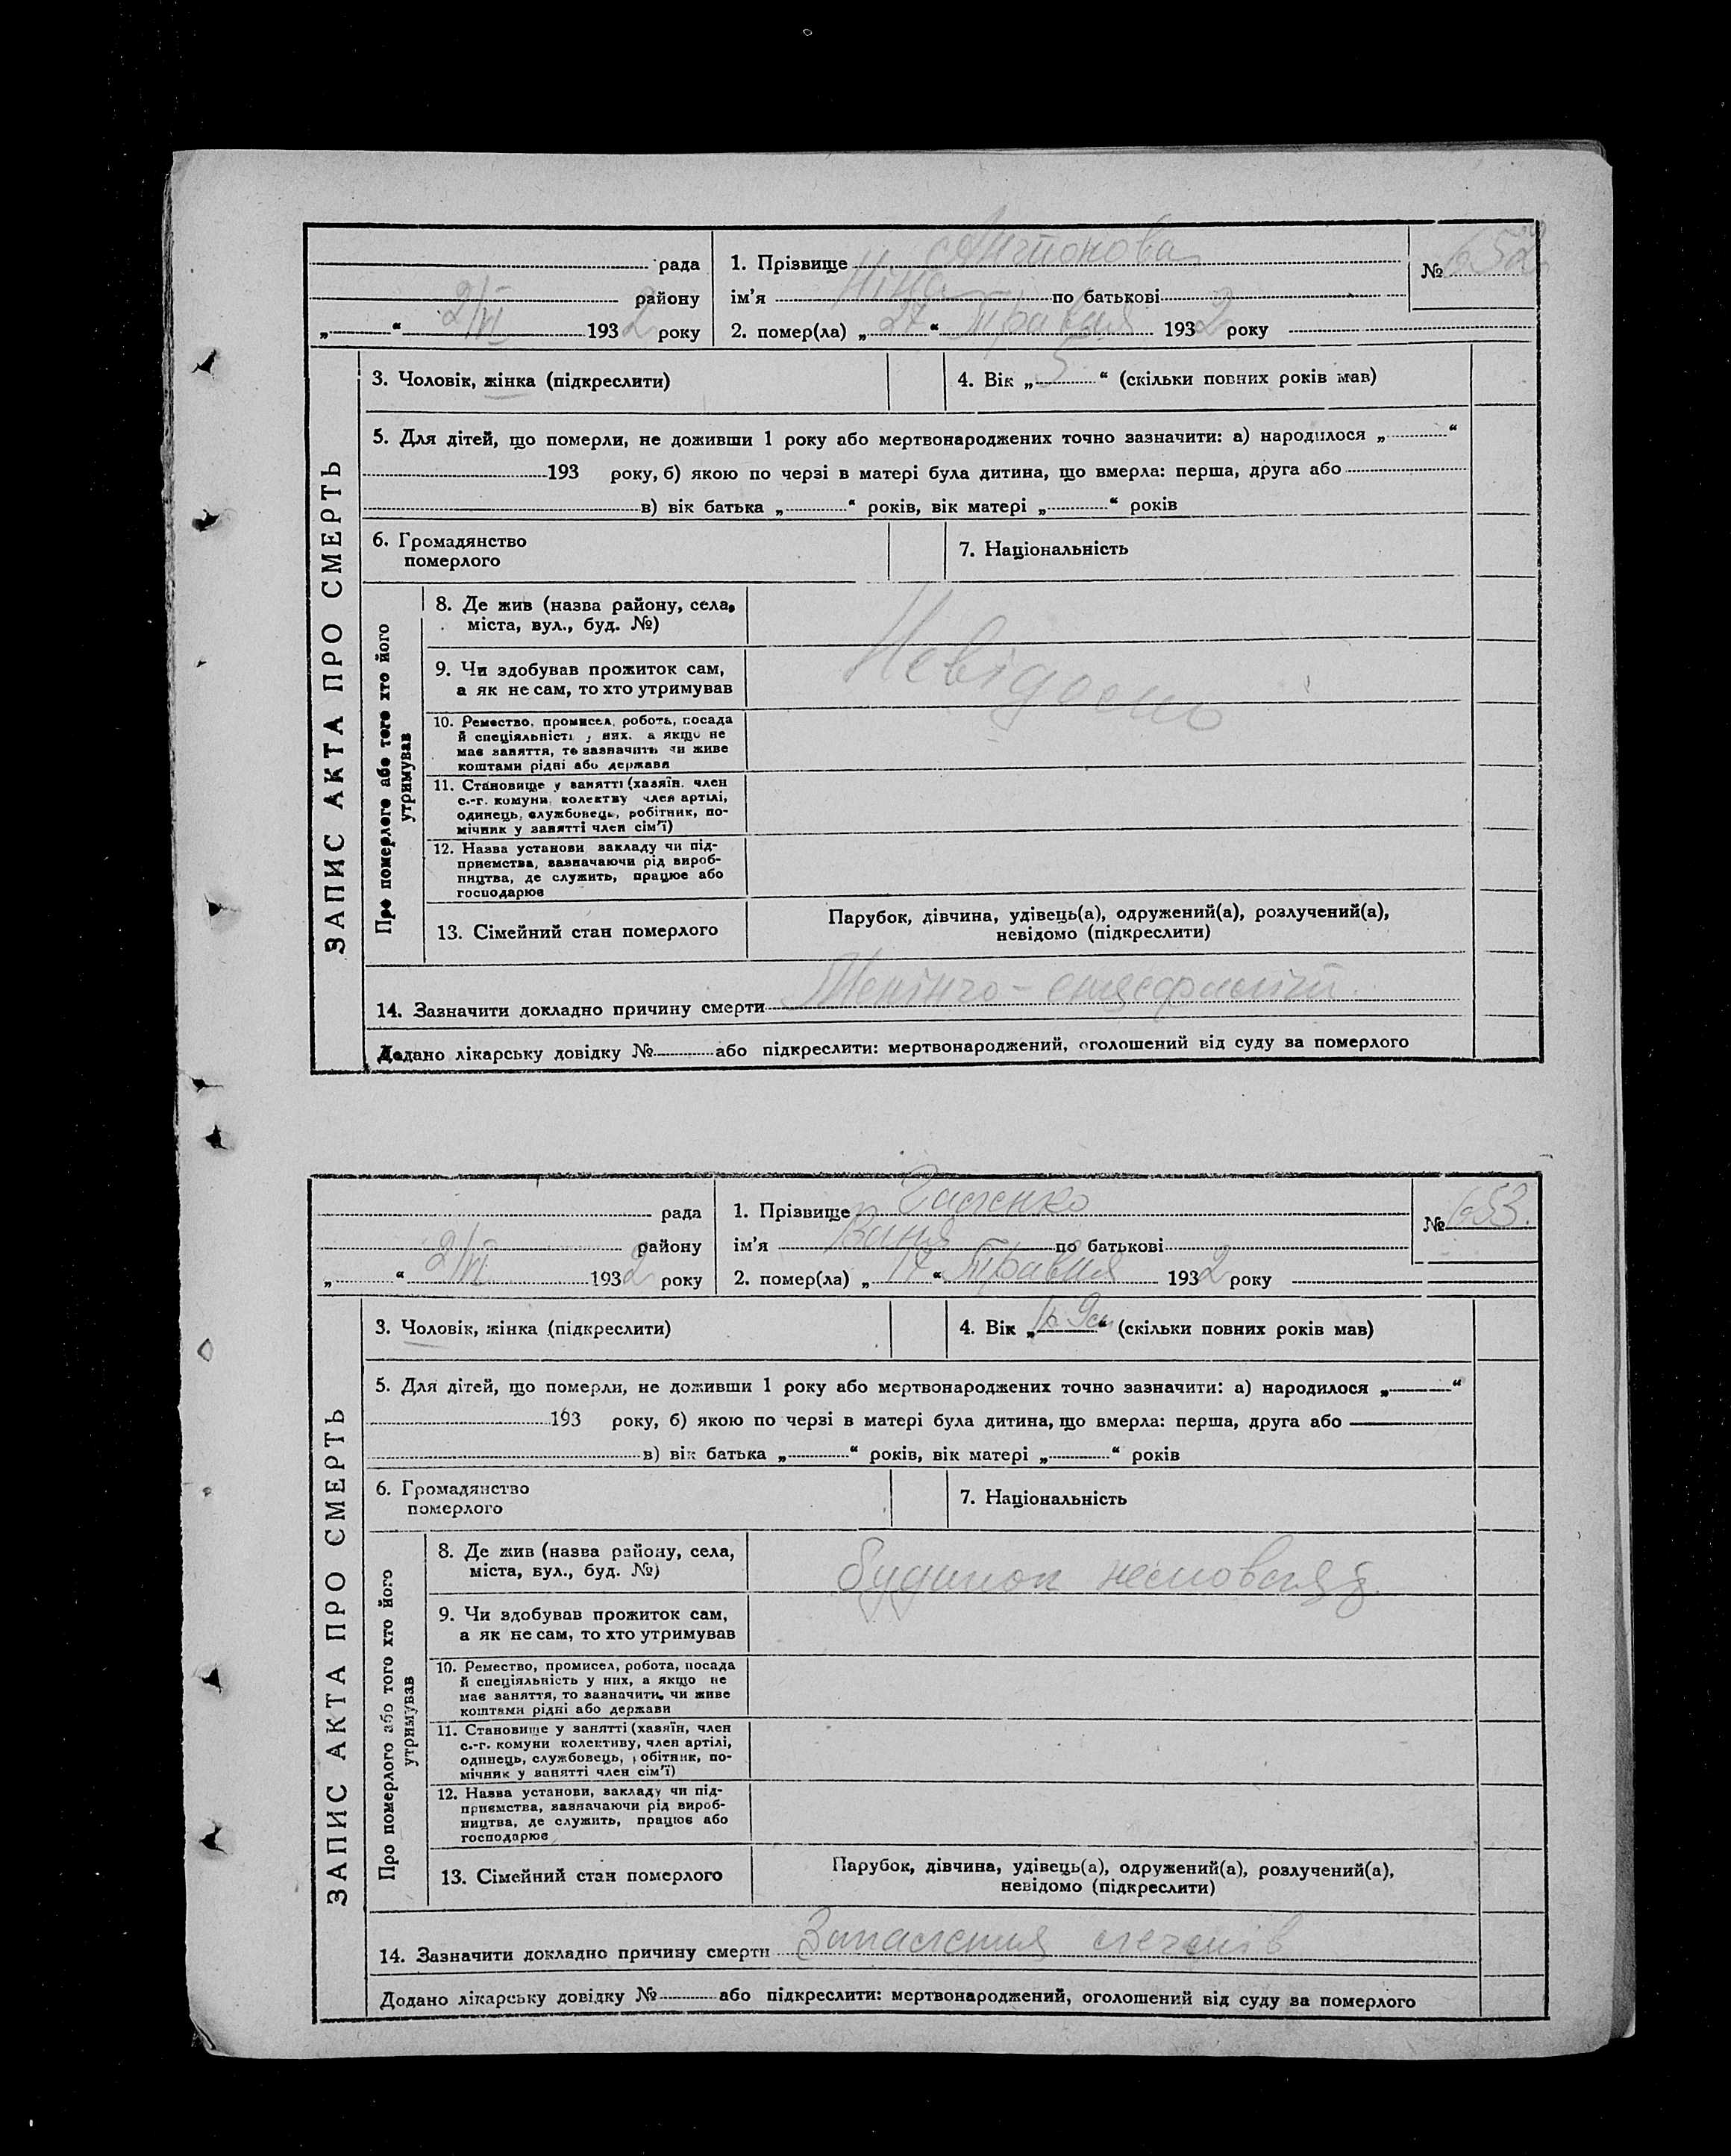 рада
району
„ “ 2/VI 1932 року
1. Прізвище Антонова
ім’я Ніна по батькові
2. помер(ла) „27“ Травня 1932 року
№ 652
ЗАПИС АКТА ПРО СМЕРТЬ
3. Чоловік, жінка (підкреслити)
4. Вік „5“ (скільки повних років мав)
5. Для дітей, що померли, не доживши 1 року або мертвонароджених точно зазначити: а) народилося „ “
193 року, б) якою по черзі в матері була дитина, що вмерла: перша, друга або
в) вік батька „ “ років, вік матері „ “ років
6. Громадянство
померлого
7. Національність
Про померлого або того хто його
утримував
8. Де жив (назва району, села,
міста, вул., буд. №)
9. Чи здобував прожиток сам,
а як не сам, то хто утримував
Невідомо
10. Ремество, промисел, робота, посада
й спеціяльність у них, а якщо не
має заняття, то зазначить чи живе
коштами рідні або держави
11. Становище у занятті (хазяїн, член
с.-г. комуни, колективу член артілі,
одинець, службовець, робітник, по-
мічник у занятті член сім’ї)
12. Назва установи закладу чи під-
приємства, зазначаючи рід вироб-
ництва, де служить, працює або
господарює
13. Сімейний стан померлого
Парубок, дівчина, удівець(а), одружений(а), розлучений(а),
невідомо (підкреслити)
14. Зазначити докладно причину смерти Менінго-
Додано лікарську довідку № або підкреслити: мертвонароджений, оголошений від суду за померлого
рада
району
„ “ 2/VI 1932 року
1. Прізвище
ім’я Ваня по батькові
2. помер(ла) „17“ Травня 1932 року
№ 653.
ЗАПИС АКТА ПРО СМЕРТЬ
3. Чоловік, жінка (підкреслити)
4. Вік „1р 9м“ (скільки повних років мав)
5. Для дітей, що померли, не доживши 1 року або мертвонароджених точно зазначити: а) народилося „ “
193 року, б) якою по черзі в матері була дитина, що вмерла: перша, друга або
в) вік батька „ “ років, вік матері „ “ років
6. Громадянство
померлого
7. Національність
Про померлого або того хто його
утримував
8. Де жив (назва району, села,
міста, вул., буд. №)
будинок немовлят
9. Чи здобував прожиток сам,
а як не сам, то хто утримував
10. Ремество, промисел, робота, посада
й спеціяльність у них, а якщо не
має заняття, то зазначити, чи живе
коштами рідні або держави
11. Становище у занятті (хазяїн, член
с.-г. комуни колективу, член артілі,
одинець, службовець, робітник, по-
мічник у занятті член сім’ї)
12. Назва установи, закладу чи під-
приємства, зазначаючи рід вироб-
ництва, де служить, працює або
господарює
13. Сімейний стан померлого
Парубок, дівчина, удівець(а), одружений(а), розлучений(а),
невідомо (підкреслити)
14. Зазначити докладно причину смерти Запалення легенів
Додано лікарську довідку № або підкреслити: мертвонароджений, оголошений від суду за померлого